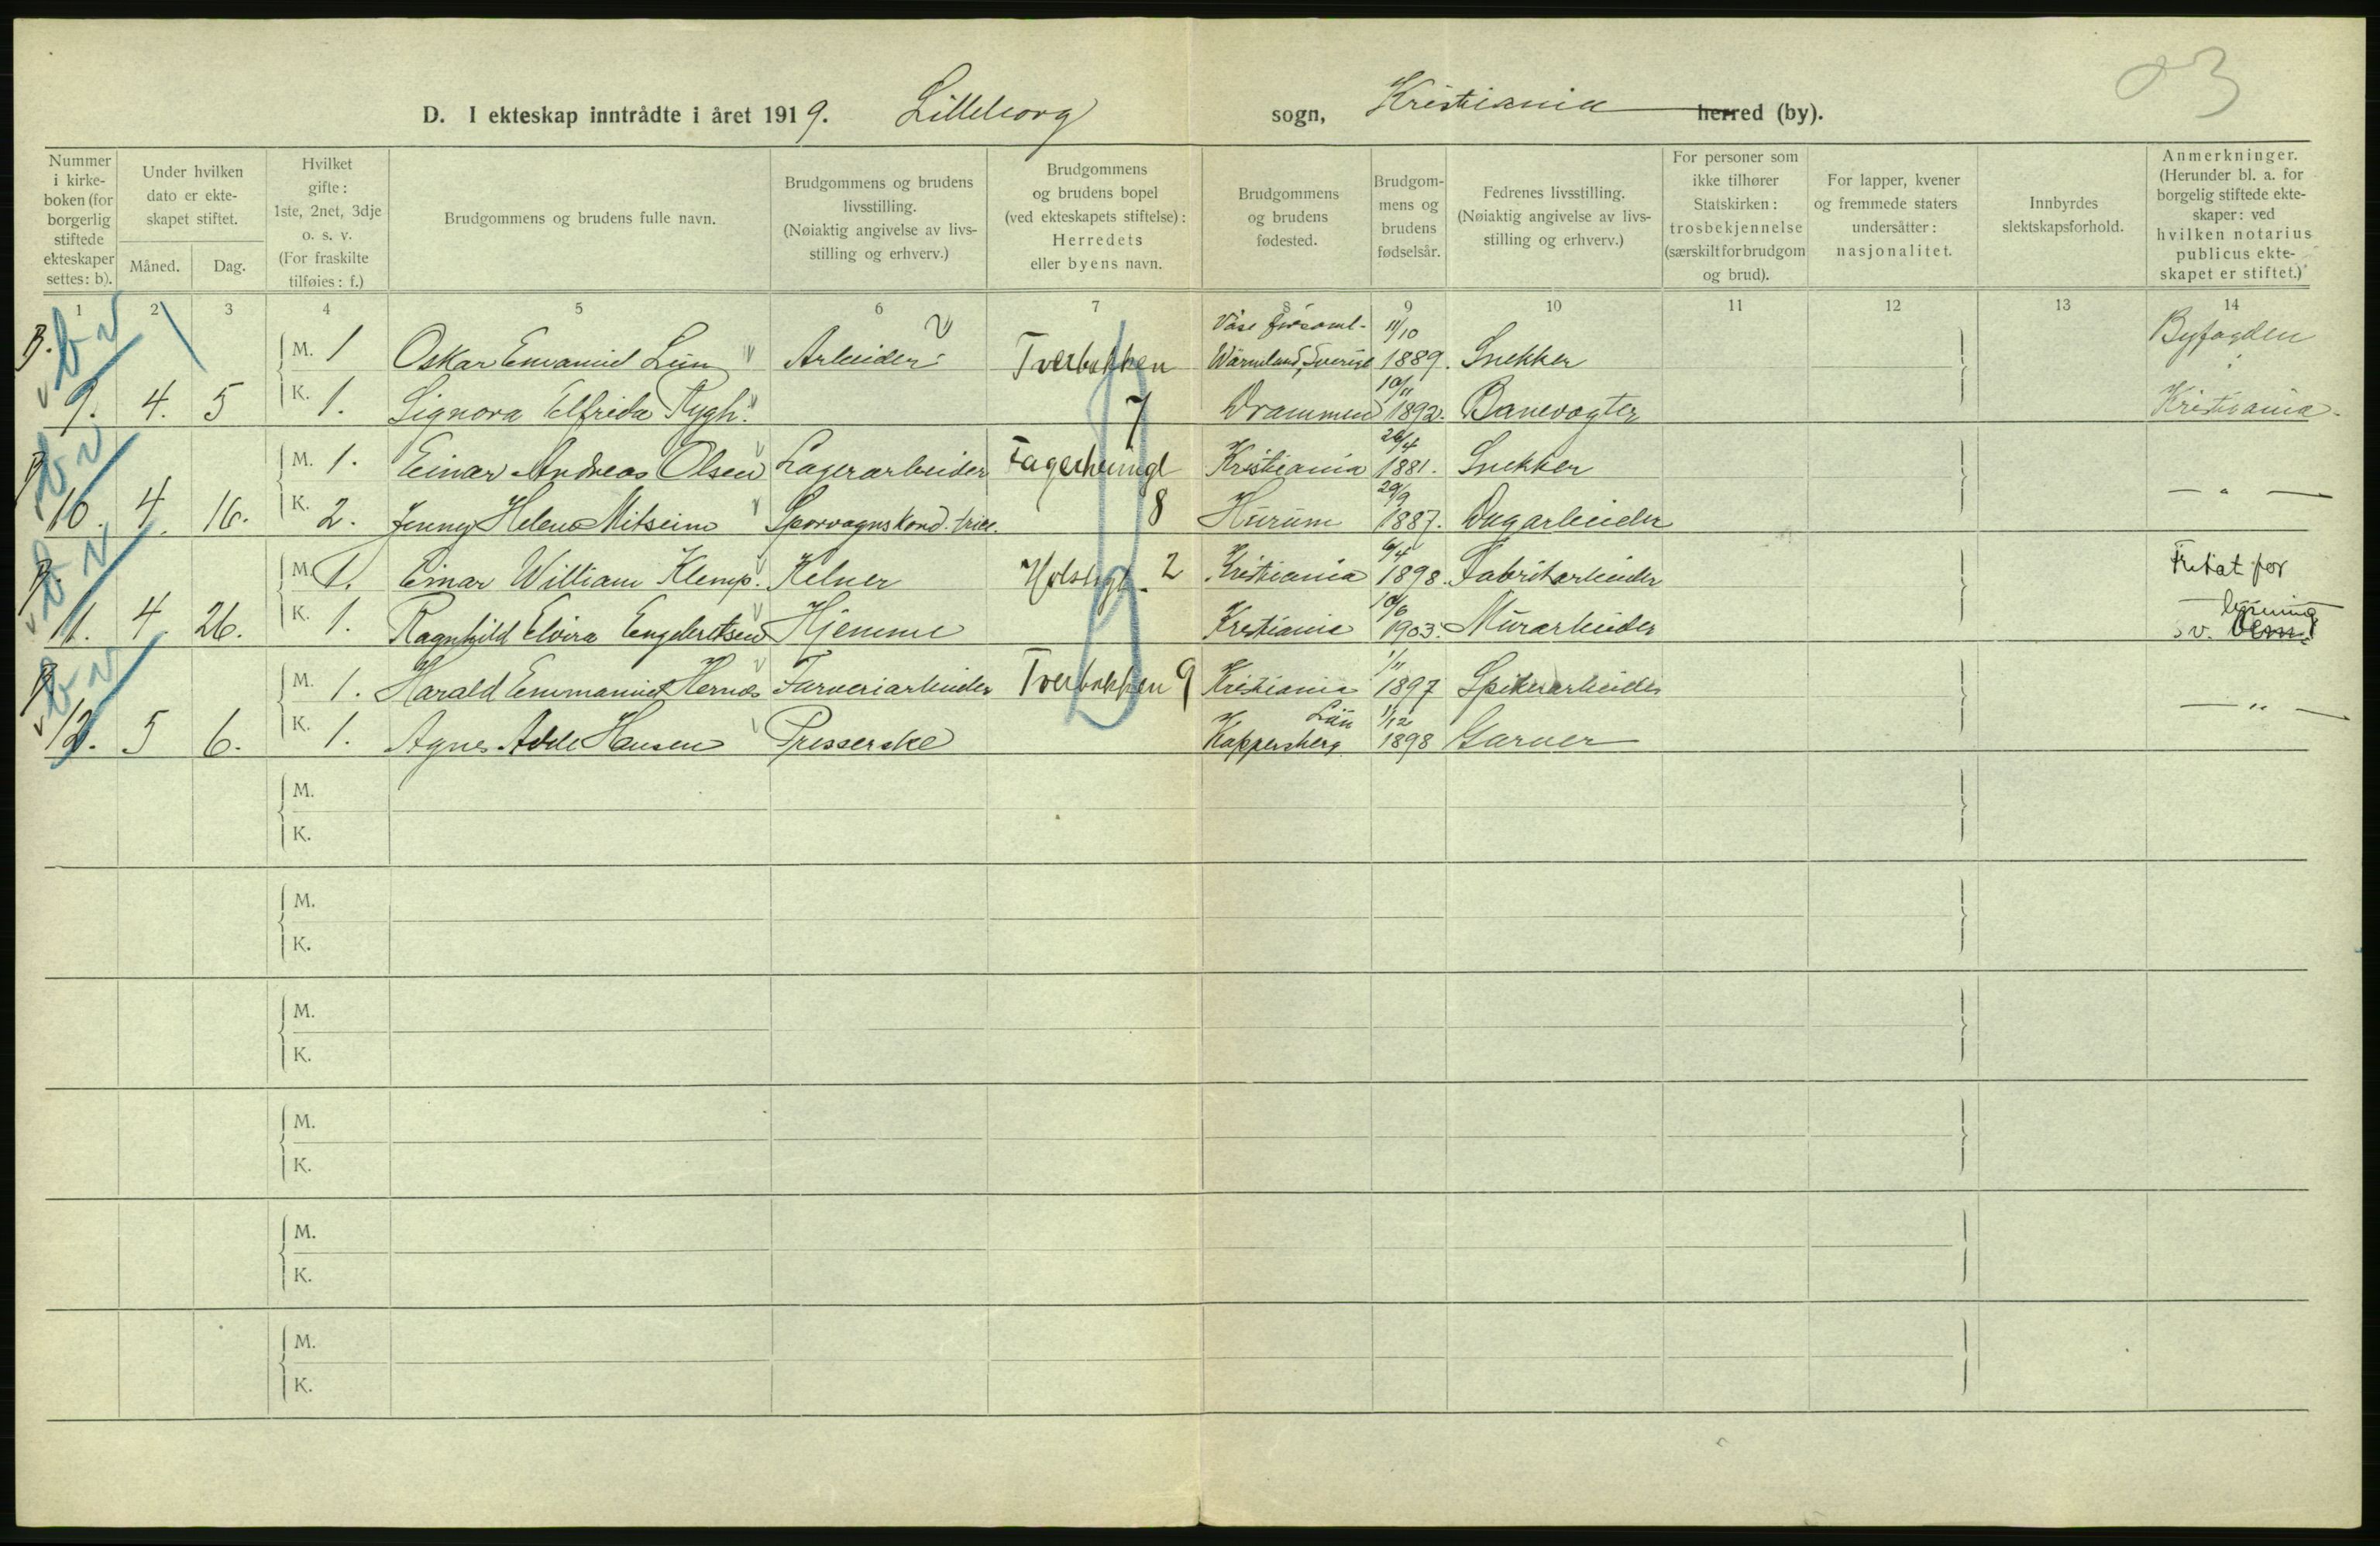 D. I ekteskap inntrådte i året 1919. Lilleborg sogn, Kristiania herred (by).
Nummer i kirke-boken (for borgerlig stiftede ekteskaper settes: b).
Under hvilken dato er ekte-skapet stiftet.
Måned. Dag.
Hvilket gifte: 1ste, 2net, 3dje o. s. v. (For fraskilte tilføies: f.)
Brudgommens og brudens fulle navn.
Brudgommens og brudens livsstilling. (Nøiaktig angivelse av livs-stilling og erhverv.)
Brudgommens og brudens bopel (ved ekteskapets stiftelse): Herredets eller byens navn.
Brudgommens og brudens fødested.
Brudgom-mens og brudens fødselsår.
Fedrenes livsstilling. (Nøiaktig angivelse av livs-stilling og erhverv.)
For personer som ikke tilhører Statskirken: trosbekjennelse (særskilt for brudgom og brud).
For lapper, kvener og fremmede staters undersåtter: nasjonalitet.
Innbyrdes slektskapsforhold.
Anmerkninger. (Herunder bl. a. for borgelig stiftede ekte-skaper: ved hvilken notarius publicus ekte-skapet er stiftet.)
1 2 3 4 5 6 7 8 9 10 11 12 13 14
B. M. 1 Oskar Emanuel Lun Arbeider Tverbakken Wärmland, Sverige 11/10 1889. Snekker Byfogden
9. 4. 5 K. 1. Signora Elfrida Rygh. 7 Drammen 10/11 1892. Banevogter Kristiania.
B. M. 1. Einar Andreas Olsen Lagerarbeider Fagerheimgt Kristiania 26/4 1881. Snekker
10. 4. 16. K. 2. Jenny Helene Sporvognskond.trice. 8 Hurum 29/9 1887. Dagarbeider — " —
B. M. 1. Einar William Klemp. Kelner Holsgt. 2 Kristiania 6/4 1898. Fabrikarbeider Fritat for
11. 4. 26. K. 1. Ragnhild Elvira Engebretsen Hjemme Kristiania 10/6 1903. Murarbeider lysning
B. M. 1. Harald Emmanuel Hernes Farveriarbeider Tverbakken 9 Kristiania 1/11 1897 Spikerarbeider
12. 5 6. K. 1. Agnes Adele Hansen Presserske Kappersberg Län 1/12 1898 Garver — " —
M.
K.
M.
K.
M.
K.
M.
K.
M.
K.
M.
K.